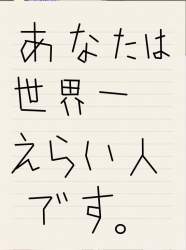 あなたは
世界一
えらい人
です。